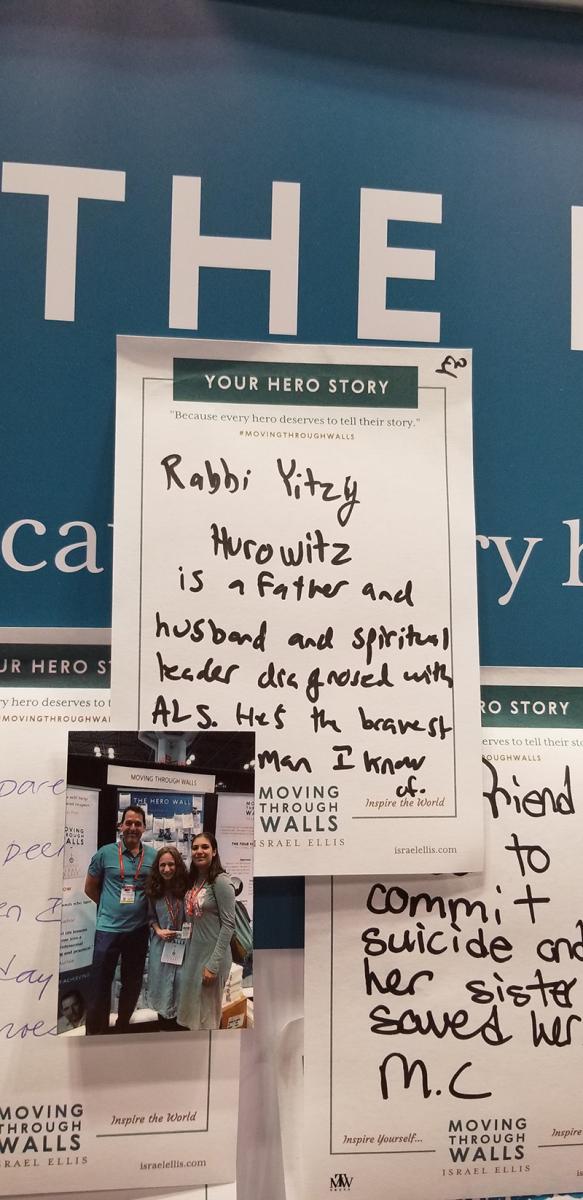 THE
ca
ry h
YOUR HERO STORY
"Because every hero deserves to tell their story."
#MOVINGTHROUGHWALLS
Rabbi Yitzy
Hurowitz
is a Father and
husband and spiritual
leader diagnosed with
ALS. He's the bravest
man I know
of.
MOVING
THROUGH
WALLS
ISRAEL ELLIS
Inspire the World
israelellis.com
UR HERO S
ry hero deserves to t
MOVINGTHROUGHWAL
pare
peer
en I
day
roes
MOVING
THROUGH
WALLS
SRAEL ELLIS
Inspire the World
israelellis.com
MOVING THROUGH WALLS
THE HERO WALL
RO STORY
erves to tell their sto
OUGHWALLS
friend
to
commit
suicide and
her sister
saved her
M.C
Inspire Yourself...
MOVING
THROUGH
WALLS
ISRAEL ELLIS
Inspire
MTW